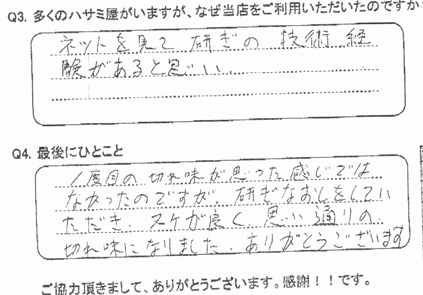 Q3. 多くのハサミ屋がいますが、なぜ当店をご利用いただいたのですか
ネットを見て 研ぎの 技術 経
験があると思い..
Q4. 最後にひとこと
1度目の 切れ味が思った感じでは
なかったのですが、研ぎなおしをしてい
ただき、スケが良く 思い通りの
切れ味になりました。ありがとうございます
ご協力頂きまして、ありがとうございます。感謝！！です。